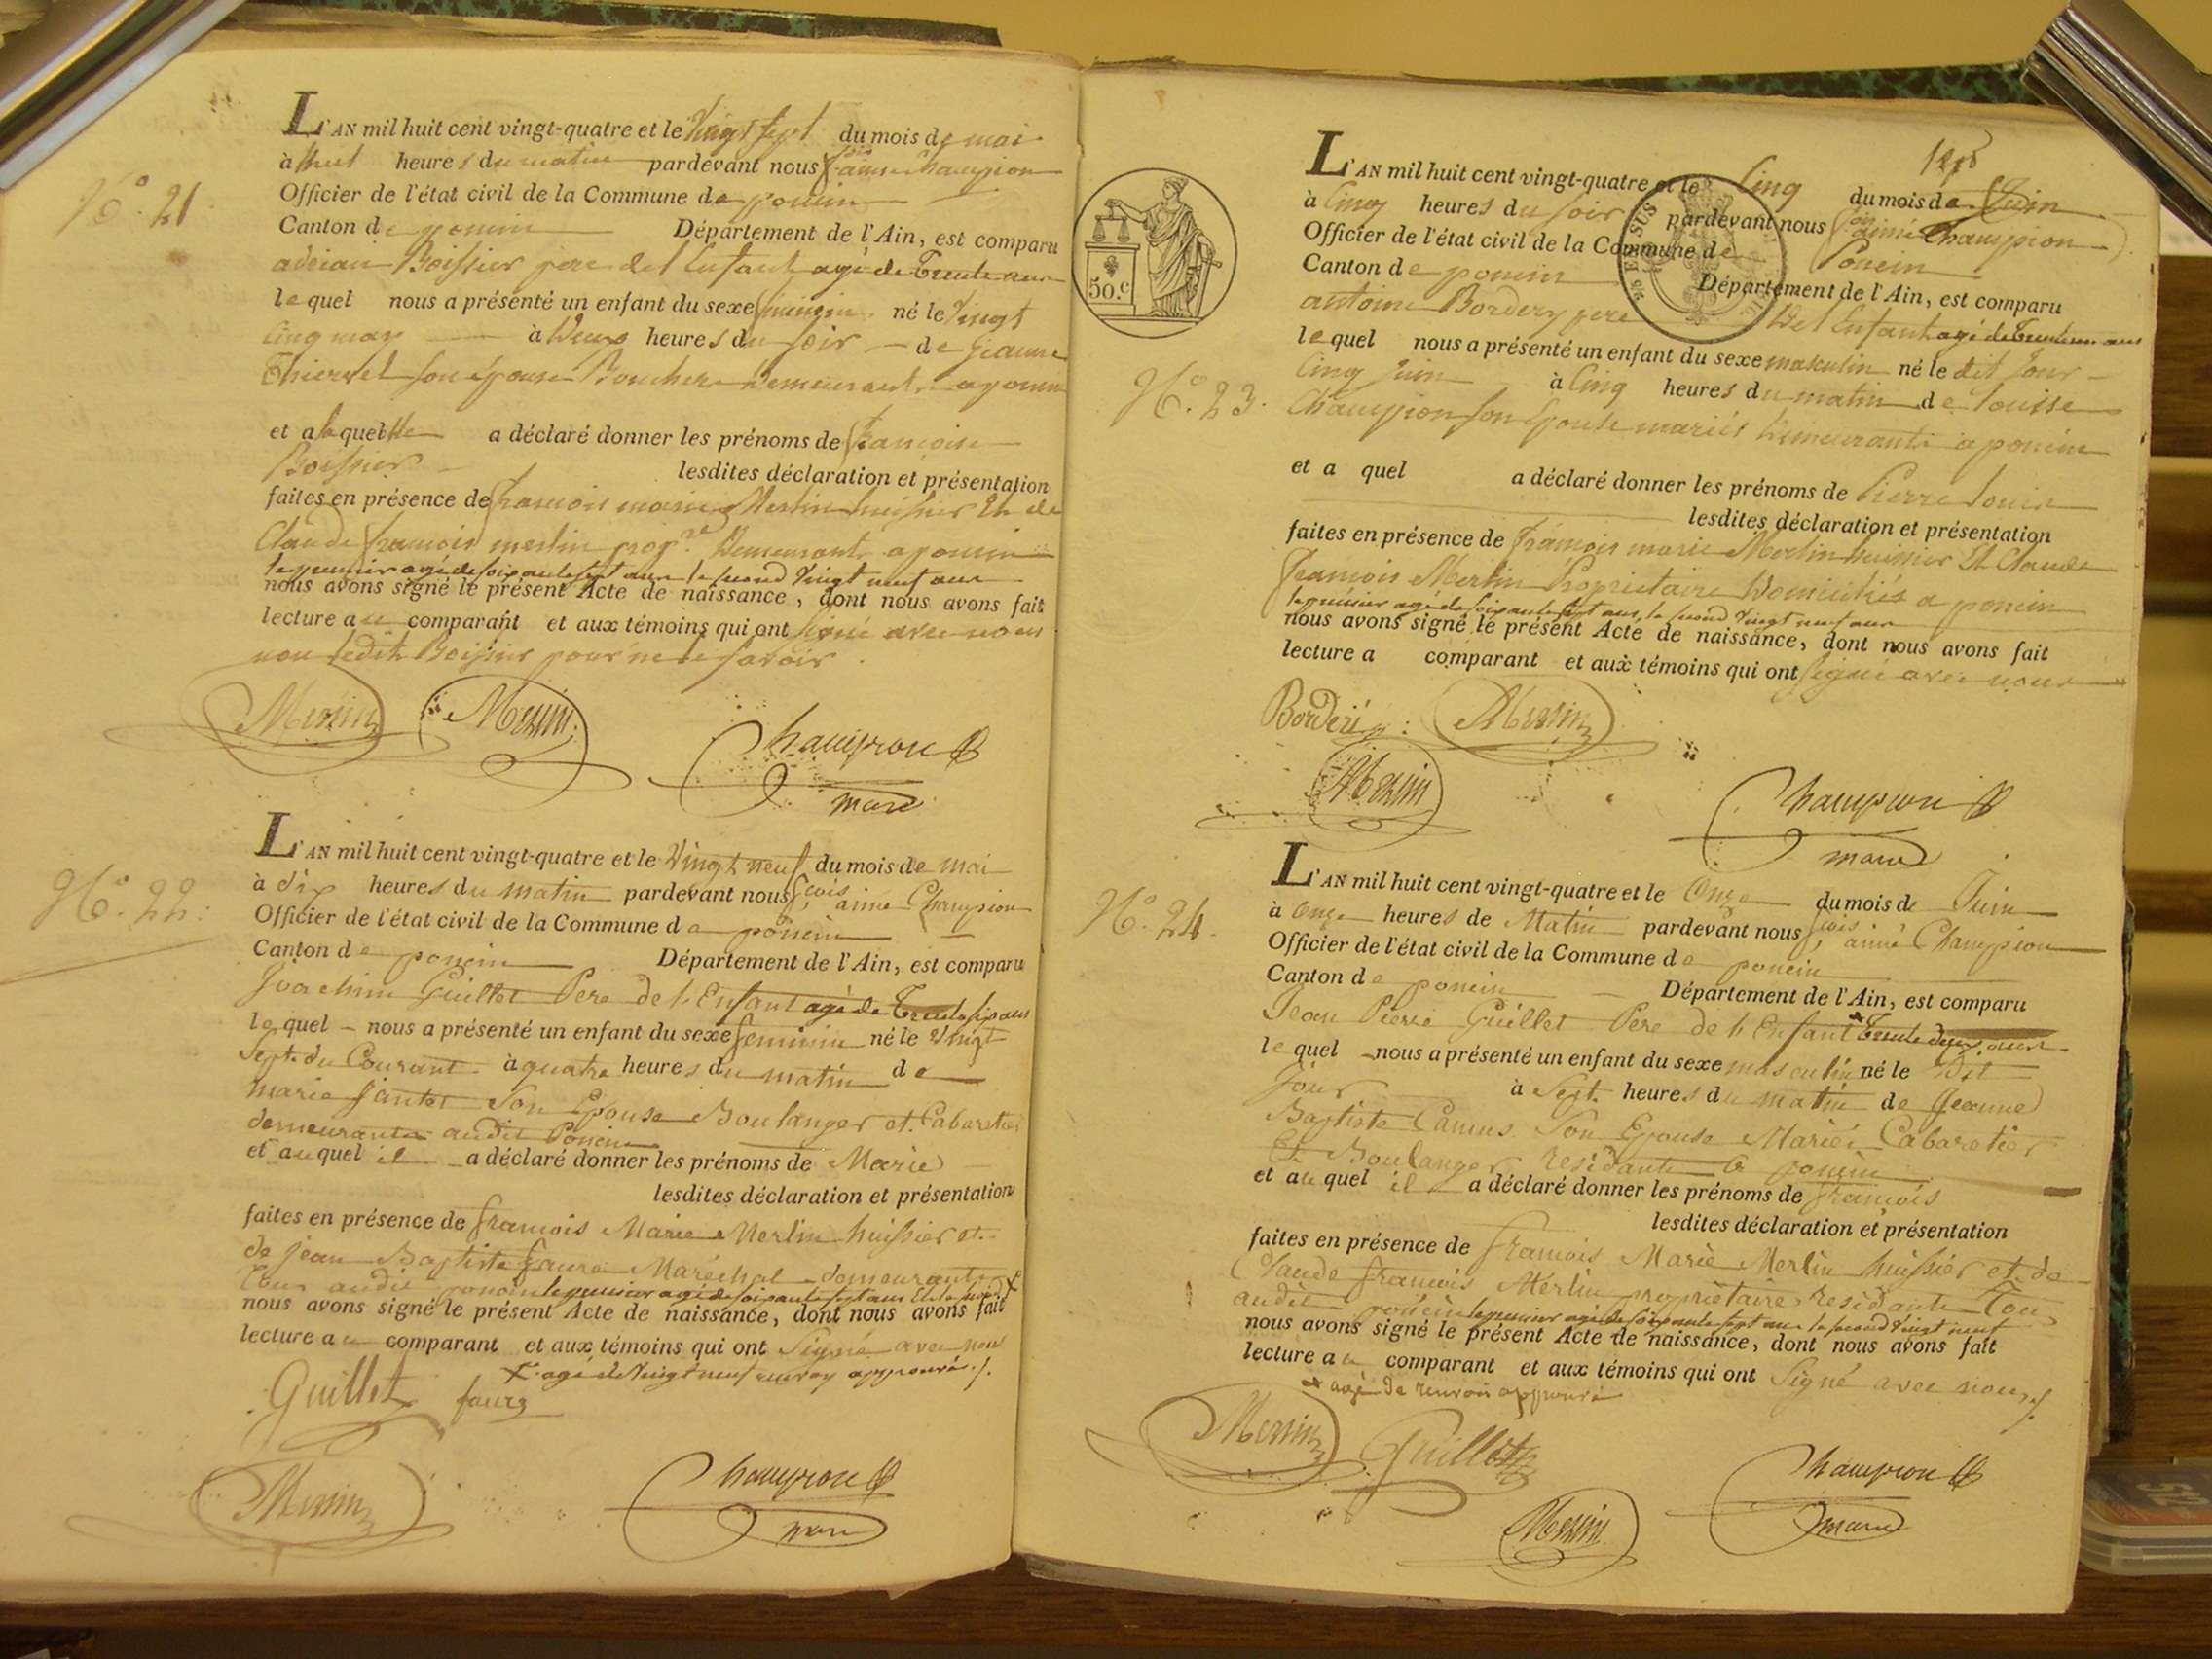 N.º 21
L'AN mil huit cent vingt-quatre et le Vingt Sept du mois de mai
à heures du matin pardevant nous f.çois aimé Champion
Officier de l'état civil de la Commune de poncin
Canton de poncin Département de l'Ain, est comparu
adrian Boissier pere de l'Enfant agé de Trente ans
lequel nous a présenté un enfant du sexe feminin né le Vingt
Cinq may à Deux heures du soir de Jeanne
son épouse Boucher demeurant a poncin
et a laquelle a déclaré donner les prénoms de françoise
Boissier lesdites déclaration et présentation
faites en présence de françois marie Merlin huissier Et de
Claude françois merlin prop.re Demeurants a poncin
le premier agé de soixante sept ans le second Vingt neuf ans
nous avons signé le présent Acte de naissance, dont nous avons fait
lecture au comparant et aux témoins qui ont signé avec nous
non ledit Boissier pour ne le savoir.
Merlin Merlin
Champion
maire
N.º 22.
L'AN mil huit cent vingt-quatre et le Vingt neuf du mois de mai
à dix heures du matin pardevant nous f.çois aimé Champion
Officier de l'état civil de la Commune de poncin
Canton de poncin Département de l'Ain, est comparu
Joachim Guillet Pere de l'Enfant agé de Trente six ans
lequel nous a présenté un enfant du sexe feminin né le Vingt
Sept du Courant à quatre heures du matin de
marie Jantet Son Epouse Boulanger et Cabaretier
demeurants audit Poncin
et auquel il a déclaré donner les prénoms de Marie
lesdites déclaration et présentation
faites en présence de françois Marie Merlin huissier et
de jean Baptiste faure Maréchal demeurants
Tous audit poncin le premier agé de soixante sept ans Et le second X
nous avons signé le présent Acte de naissance, dont nous avons fait
lecture au comparant et aux témoins qui ont Signé avec nous
X agé de Vingt neuf renvoy approuvé ./.
Guillet faure
Merlin
Champion
maire
50.c
SUS
N.º 23.
L'AN mil huit cent vingt-quatre et le Cinq du mois de Juin
à Cinq heures du soir pardevant nous f.çois aimé Champion
Officier de l'état civil de la Commune de Poncin
Canton de poncin Département de l'Ain, est comparu
antoine Bordery pere de l'Enfant agé de ans
lequel nous a présenté un enfant du sexe masculin né le dit Jour
Cinq Juin à Cinq heures du matin de Louise
Champion son Epouse mariés Demeurants a poncin
et a quel a déclaré donner les prénoms de Pierre Louis
lesdites déclaration et présentation
faites en présence de françois marie Merlin huissier Et Claude
françois Merlin Propriétaire Domiciliés a poncin
le premier agé de soixante sept ans, le second Vingt neuf ans
nous avons signé le présent Acte de naissance, dont nous avons fait
lecture a comparant et aux témoins qui ont signé avec nous
Borderi Merlin
Merlin
Champion
maire
N.º 24.
L'AN mil huit cent vingt-quatre et le Onze du mois de Juin
à Onze heures de Matin pardevant nous f.çois aimé Champion
Officier de l'état civil de la Commune de poncin
Canton de poncin Département de l'Ain, est comparu
Jean Pierre Guillet Pere de l'Enfant X Trente deux ans
lequel nous a présenté un enfant du sexe masculin né le Dit
Jour à Sept heures du matin de Jeanne
Baptiste Camus Son Epouse Mariés Cabaretier
Et Boulanger residants a poncin
et auquel il a déclaré donner les prénoms de françois
lesdites déclaration et présentation
faites en présence de françois Marie Merlin huissier et de
Claude françois Merlin propriétaire residants Tous
audit poncin le premier agé de soixante sept ans le second Vingt neuf
nous avons signé le présent Acte de naissance, dont nous avons fait
lecture au comparant et aux témoins qui ont Signé avec nous ./.
X agé de renvoi approuvé
Merlin Guillet
Merlin
Champion
maire